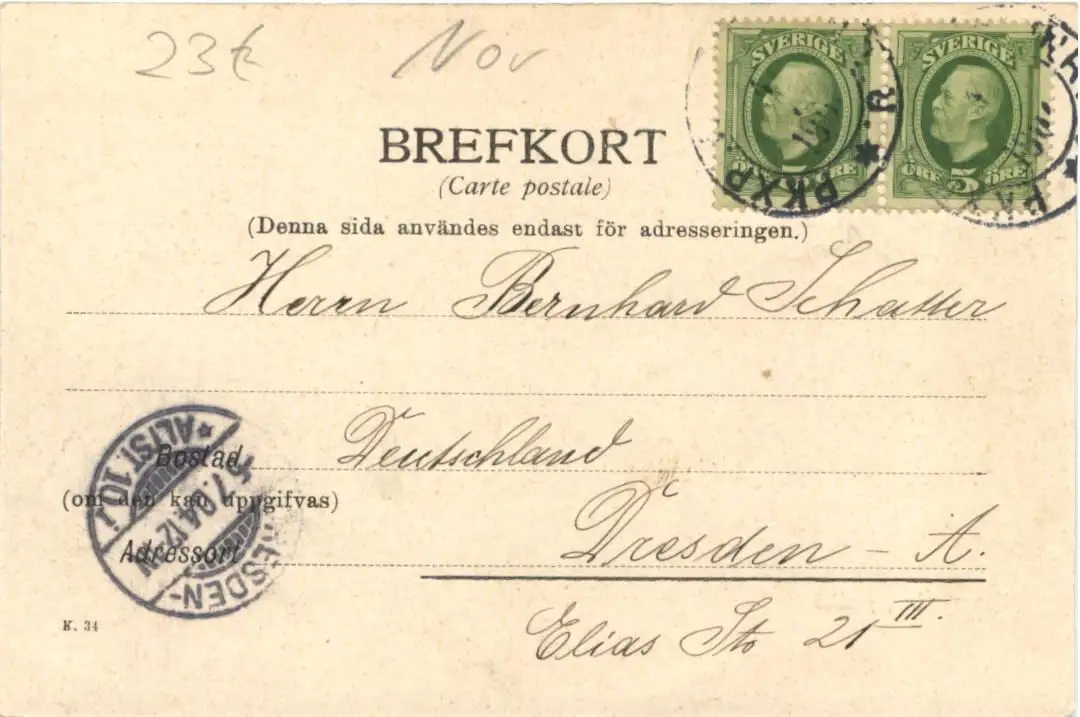 23€ Nov
SVERIGE SVERIGE
ÖRE ÖRE 5 ÖRE
PKXP
BREFKORT
(Carte postale)
(Denna sida användes endast för adresseringen.)
Herrn Bernhard Schatter
Deutschland
Bostad
(om den kan uppgifvas)
Dresden - A.
Adressort
Elias Str 21 III.
K. 34
DRESDEN-ALTST. 10